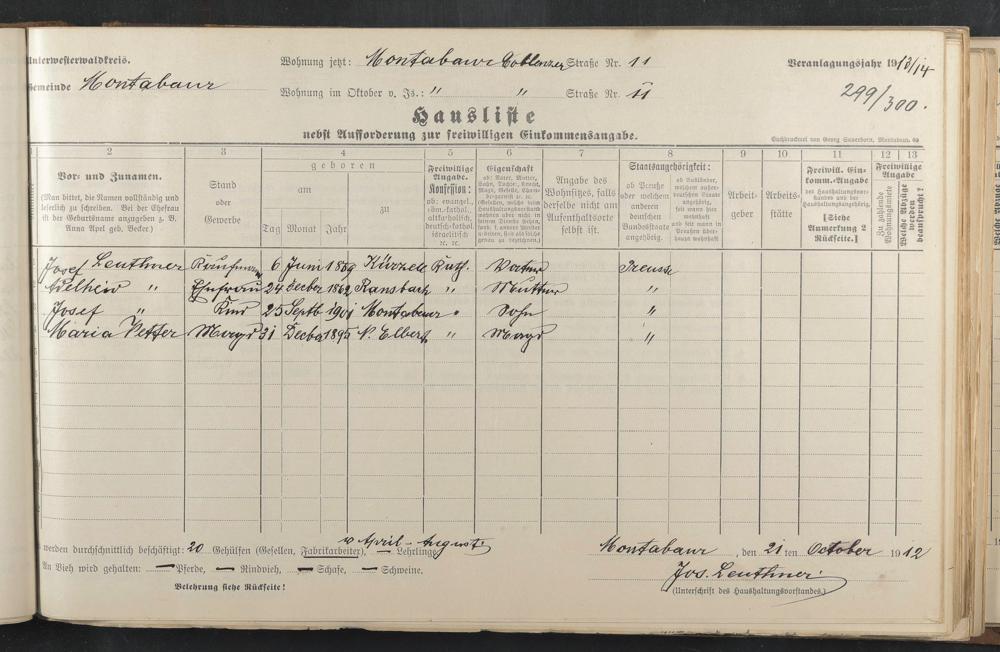 Unterwesterwaldkreis. Wohnung jetzt: Montabaur Coblenzer Straße Nr. 11 Veranlagungsjahr 1913/14
Gemeinde Montabaur Wohnung im Oktober v. Js.: " " Straße Nr. 11 299/300.
Hausliste
nebst Aufforderung zur freiwilligen Einkommensangabe.
Buchdruckerei von Georg Sauerborn, Montabaur.
2 3 4 5 6 7 8 9 10 11 12 13
Vor- und Zunamen.
(Man bittet, die Namen vollständig und
leserlich zu schreiben. Bei der Ehefrau
ist der Geburtsname anzugeben z. B.
Anna Apel geb. Becker.)
Stand
oder
Gewerbe
geboren
am zu
Tag Monat Jahr
Freiwillige
Angabe.
Konfession:
ob: evangel.,
röm.-kathol.,
altkatholisch,
deutsch-kathol.
israelitisch
ec. ec.
Eigenschaft
Angabe des
Wohnsitzes, falls
derselbe nicht am
Aufenthaltsorte
selbst ist.
Staatsangehörigkeit:
ob Preuße
oder welchem
anderen
deutschen
Bundesstaate
angehörig.
Arbeit-
geber
Arbeits-
stätte
Freiwill. Ein-
komm.-Angabe
[Siehe
Anmerkung 2
Rückseite.]
Freiwillige
Angabe
Zu zahlende
Wohnungsmiete
Welche Abzüge
werden
beansprucht?
Josef Leuthner Kaufmann 6 Juni 1859 Kath. Vater Preuße
Adelheid " Ehefrau 24 Decber 1862 Ransbach " Mutter "
Josef " Kind 25 Septb 1901 Montabaur " Sohn "
Maria Vetter Magd 31 Decbr 1895 N. Elbert " Magd "
werden durchschnittlich beschäftigt: 20 Gehülfen (Gesellen, Fabrikarbeiter), — Lehrlinge
v April - August
Montabaur, den 21ten October 1912
An Vieh wird gehalten: — Pferde, — Rindvieh, — Schafe, — Schweine.
Jos. Leuthner
Belehrung siehe Rückseite!
(Unterschrift des Haushaltungsvorstandes.)